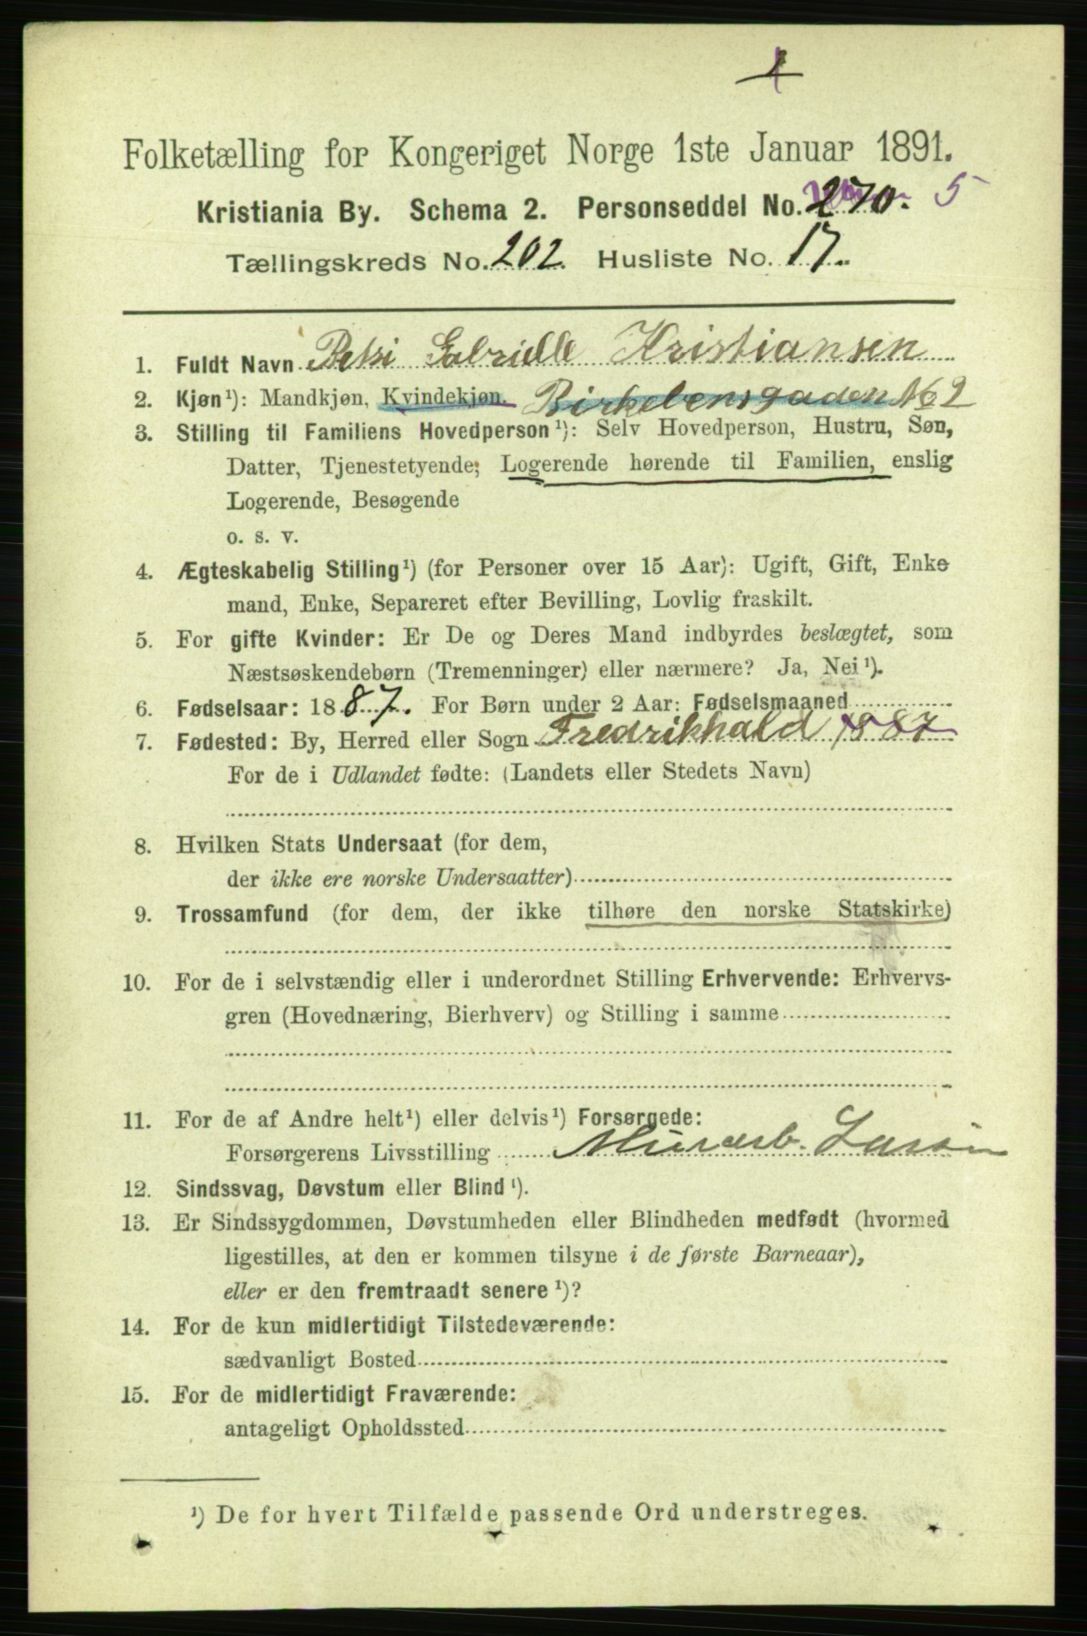 Folketælling for Kongeriget Norge 1ste Januar 1891.
Kristiania By. Schema 2. Personseddel No. 270. 5
Tællingskreds No. 202. Husliste No. 17.
1. Fuldt Navn Betsi Gabrielle Kristiansen
2. Kjøn¹): Mandkjøn, Kvindekjøn. Birkebensgaden No 2
3. Stilling til Familiens Hovedperson¹): Selv Hovedperson, Hustru, Søn,
Datter, Tjenestetyende; Logerende hørende til Familien, enslig
Logerende, Besøgende
o. s. v.
4. Ægteskabelig Stilling¹) (for Personer over 15 Aar): Ugift, Gift, Enke
mand, Enke, Separeret efter Bevilling, Lovlig fraskilt.
5. For gifte Kvinder: Er De og Deres Mand indbyrdes beslægtet, som
Næstsøskendebørn (Tremenninger) eller nærmere? Ja, Nei¹).
6. Fødselsaar: 1887. For Børn under 2 Aar: Fødselsmaaned
7. Fødested: By, Herred eller Sogn Fredrikhald 1887
For de i Udlandet fødte: (Landets eller Stedets Navn)
8. Hvilken Stats Undersaat (for dem,
der ikke ere norske Undersaatter)
9. Trossamfund (for dem, der ikke tilhøre den norske Statskirke)
10. For de i selvstændig eller i underordnet Stilling Erhvervende: Erhvervs-
gren (Hovednæring, Bierhverv) og Stilling i samme
11. For de af Andre helt¹) eller delvis¹) Forsørgede:
Forsørgerens Livsstilling Murarb. Larsen
12. Sindssvag, Døvstum eller Blind¹).
13. Er Sindssygdommen, Døvstumheden eller Blindheden medfødt (hvormed
ligestilles, at den er kommen tilsyne i de første Barneaar),
eller er den fremtraadt senere¹)?
14. For de kun midlertidigt Tilstedeværende:
sædvanligt Bosted
15. For de midlertidigt Fraværende:
antageligt Opholdssted
¹) De for hvert Tilfælde passende Ord understreges.